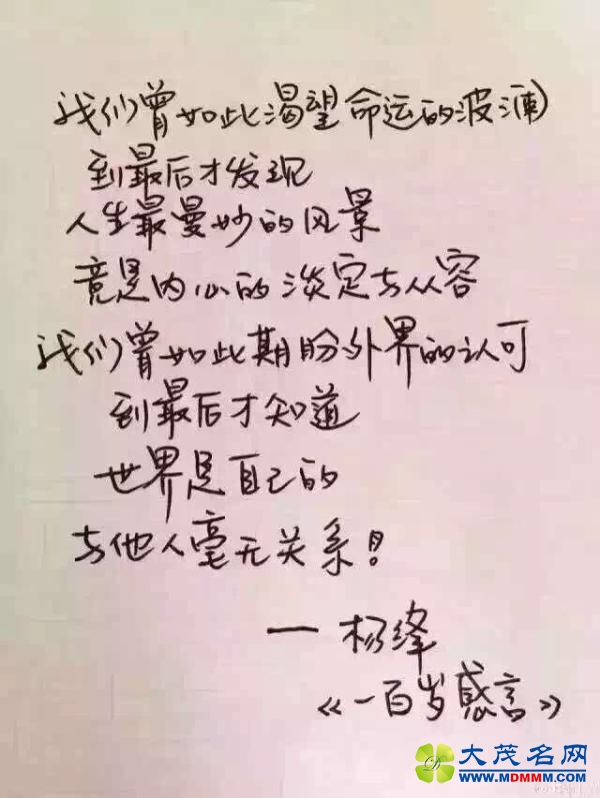 我们曾如此渴望命运的波澜
到最后才发现
人生最曼妙的风景
竟是内心的淡定与从容
我们曾如此期盼外界的认可
到最后才知道
世界是自己的
与他人毫无关系！
— 杨绛
《一百岁感言》
大茂名网
WWW.MDMMM.COM